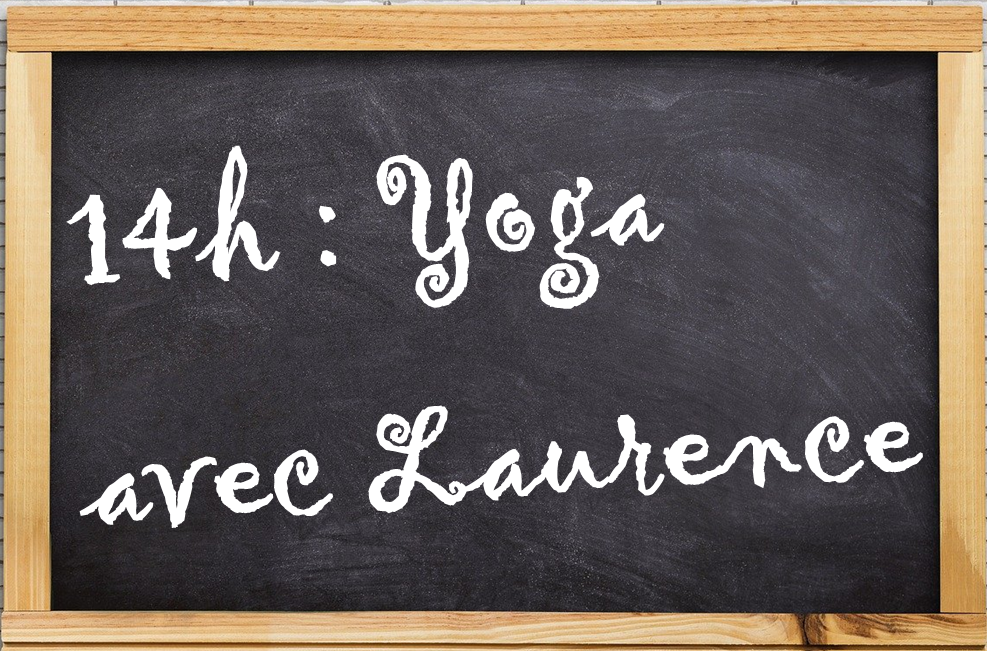 14h : Yoga
avec Laurence